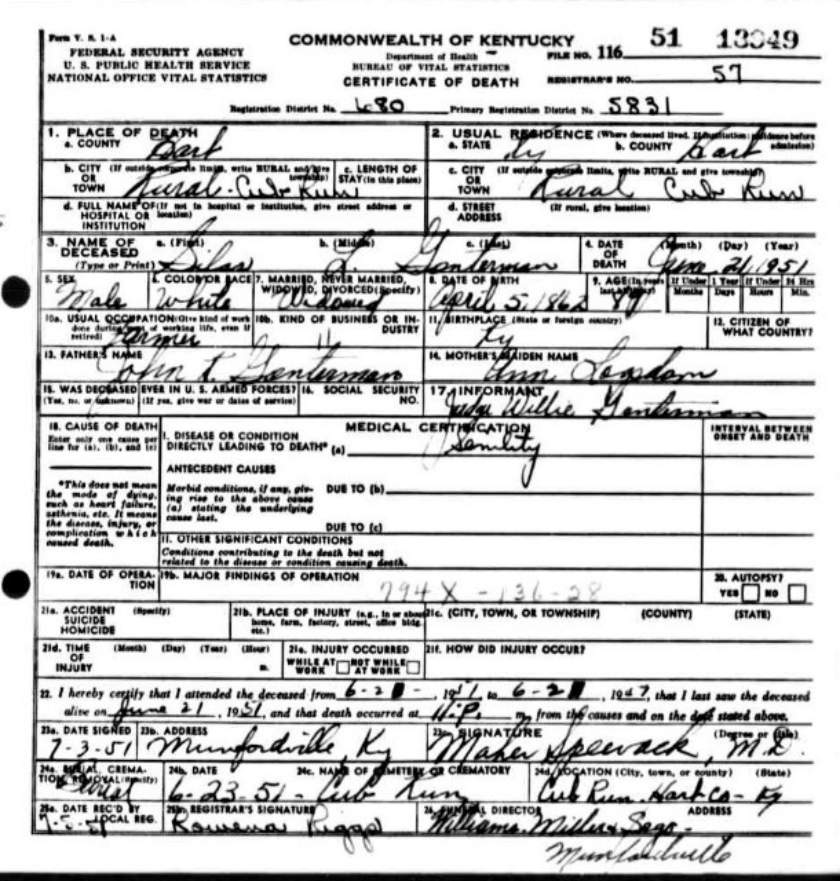 Form V. S. 1-A
FEDERAL SECURITY AGENCY
U. S. PUBLIC HEALTH SERVICE
NATIONAL OFFICE VITAL STATISTICS
COMMONWEALTH OF KENTUCKY
Department of Health
BUREAU OF VITAL STATISTICS
CERTIFICATE OF DEATH
FILE NO. 116 51 13049
REGISTRAR'S NO. 57
Registration District No. 680 Primary Registration District No. 5831
1. PLACE OF DEATH
a. COUNTY Hart
2. USUAL RESIDENCE (Where deceased lived. If institution: residence before admission)
a. STATE Ky b. COUNTY Hart
b. CITY (If outside corporate limits, write RURAL and give township) OR TOWN Rural - Cub Run
c. LENGTH OF STAY (in this place)
c. CITY (If outside corporate limits, write RURAL and give township) OR TOWN Rural Cub Run
d. FULL NAME OF (If not in hospital or institution, give street address or location) HOSPITAL OR INSTITUTION
d. STREET ADDRESS (If rural, give location)
3. NAME OF DECEASED (Type or Print) a. (First) Silas b. (Middle) L. c. (Last) Gonterman
4. DATE OF DEATH (Month) (Day) (Year) June 21, 1951
5. SEX Male
6. COLOR OR RACE White
7. MARRIED, NEVER MARRIED, WIDOWED, DIVORCED (Specify) Widowed
8. DATE OF BIRTH April 5, 1862
9. AGE (In years last birthday) If Under 1 Year Months Days If Under 24 Hrs Hours Min.
10a. USUAL OCCUPATION (Give kind of work done during most of working life, even if retired) Farmer
10b. KIND OF BUSINESS OR INDUSTRY "
11. BIRTHPLACE (State or foreign country) Ky
12. CITIZEN OF WHAT COUNTRY?
13. FATHER'S NAME John T. Gonterman
14. MOTHER'S MAIDEN NAME Ann Logsdon
15. WAS DECEASED EVER IN U. S. ARMED FORCES? (Yes, no, or unknown) (If yes, give war or dates of service)
16. SOCIAL SECURITY NO.
17. INFORMANT Judge Willie Gonterman
18. CAUSE OF DEATH
Enter only one cause per line for (a), (b), and (c)
MEDICAL CERTIFICATION
INTERVAL BETWEEN ONSET AND DEATH
I. DISEASE OR CONDITION DIRECTLY LEADING TO DEATH* (a) Senility
*This does not mean the mode of dying, such as heart failure, asthenia, etc. It means the disease, injury, or complication which caused death.
ANTECEDENT CAUSES
Morbid conditions, if any, giving rise to the above cause (a) stating the underlying cause last.
DUE TO (b)
DUE TO (c)
II. OTHER SIGNIFICANT CONDITIONS
Conditions contributing to the death but not related to the disease or condition causing death.
19a. DATE OF OPERATION
19b. MAJOR FINDINGS OF OPERATION
794X - 136-28
20. AUTOPSY? YES NO
21a. ACCIDENT SUICIDE HOMICIDE (Specify)
21b. PLACE OF INJURY (e.g., in or about home, farm, factory, street, office bldg. etc.)
21c. (CITY, TOWN, OR TOWNSHIP) (COUNTY) (STATE)
21d. TIME OF INJURY (Month) (Day) (Year) (Hour) m.
21e. INJURY OCCURRED WHILE AT WORK NOT WHILE AT WORK
21f. HOW DID INJURY OCCUR?
22. I hereby certify that I attended the deceased from 6-2 -, 1951 to 6-2 , 19 , that I last saw the deceased
alive on June 21, 1951, and that death occurred at 11 P. m, from the causes and on the date stated above.
23a. DATE SIGNED 7-3-51
23b. ADDRESS Munfordville, Ky
23c. SIGNATURE Maher Speevack, M.D. (Degree or title)
24a. BURIAL, CREMATION, REMOVAL (Specify) Burial
24b. DATE 6-23-51
24c. NAME OF CEMETERY OR CREMATORY Cub Run
24d. LOCATION (City, town, or county) (State) Cub Run, Hart Co - Ky
25a. DATE REC'D BY LOCAL REG. 7-5-51
25b. REGISTRAR'S SIGNATURE Rowena Riggs
26. FUNERAL DIRECTOR ADDRESS
Williams, Miller & Sego -
Munfordville